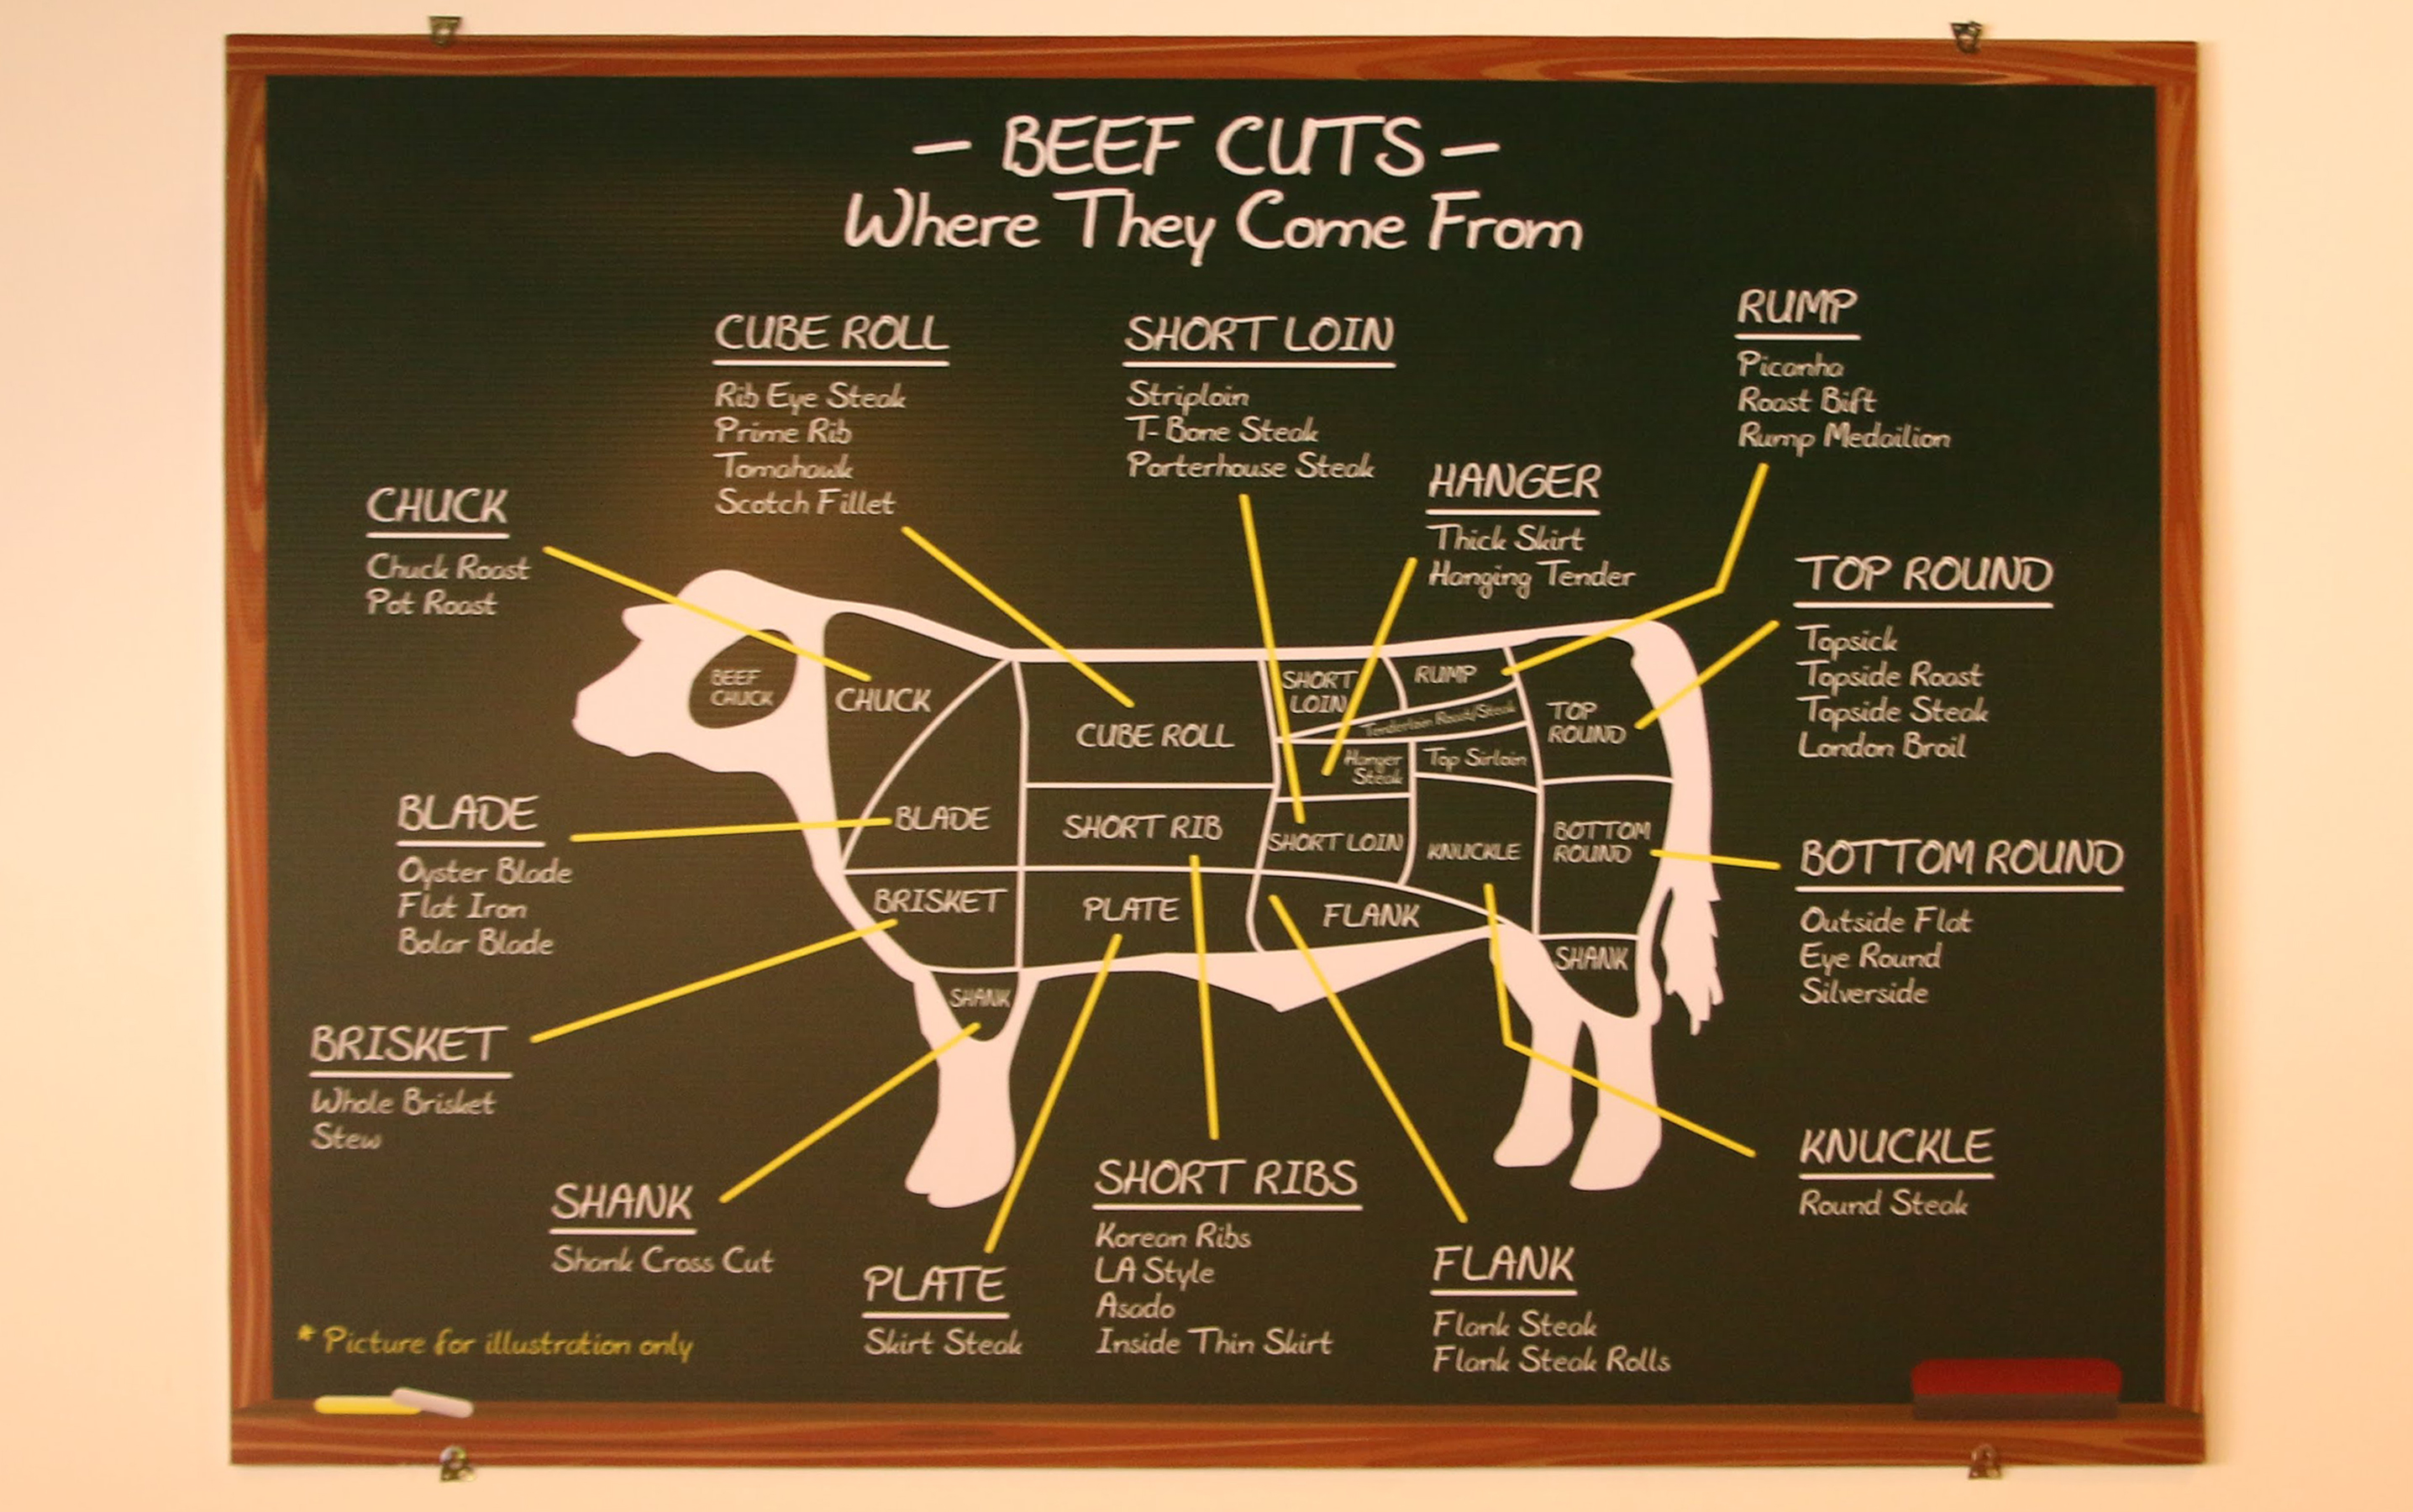 - BEEF CUTS -
Where They Come From
CUBE ROLL
Rib Eye Steak
Prime Rib
Tomahawk
Scotch Fillet
SHORT LOIN
Striploin
T-Bone Steak
Porterhouse Steak
RUMP
Picanha
Roast Bift
Rump Medailion
HANGER
Thick Skirt
Hanging Tender
CHUCK
Chuck Roast
Pot Roast
TOP ROUND
Topsick
Topside Roast
Topside Steak
London Broil
BEEF
CHUCK
CHUCK
CUBE ROLL
SHORT
LOIN
RUMP
Tenderloin Roast/Steak
TOP
ROUND
Hanger
Steak
Top Sirloin
BLADE
SHORT RIB
SHORT LOIN
KNUCKLE
BOTTOM
ROUND
BRISKET
PLATE
FLANK
SHANK
SHANK
BLADE
Oyster Blade
Flat Iron
Bolar Blade
BOTTOM ROUND
Outside Flat
Eye Round
Silverside
BRISKET
Whole Brisket
Stew
SHANK
Shank Cross Cut
PLATE
Skirt Steak
SHORT RIBS
Korean Ribs
LA Style
Asado
Inside Thin Skirt
FLANK
Flank Steak
Flank Steak Rolls
KNUCKLE
Round Steak
* Picture for illustration only